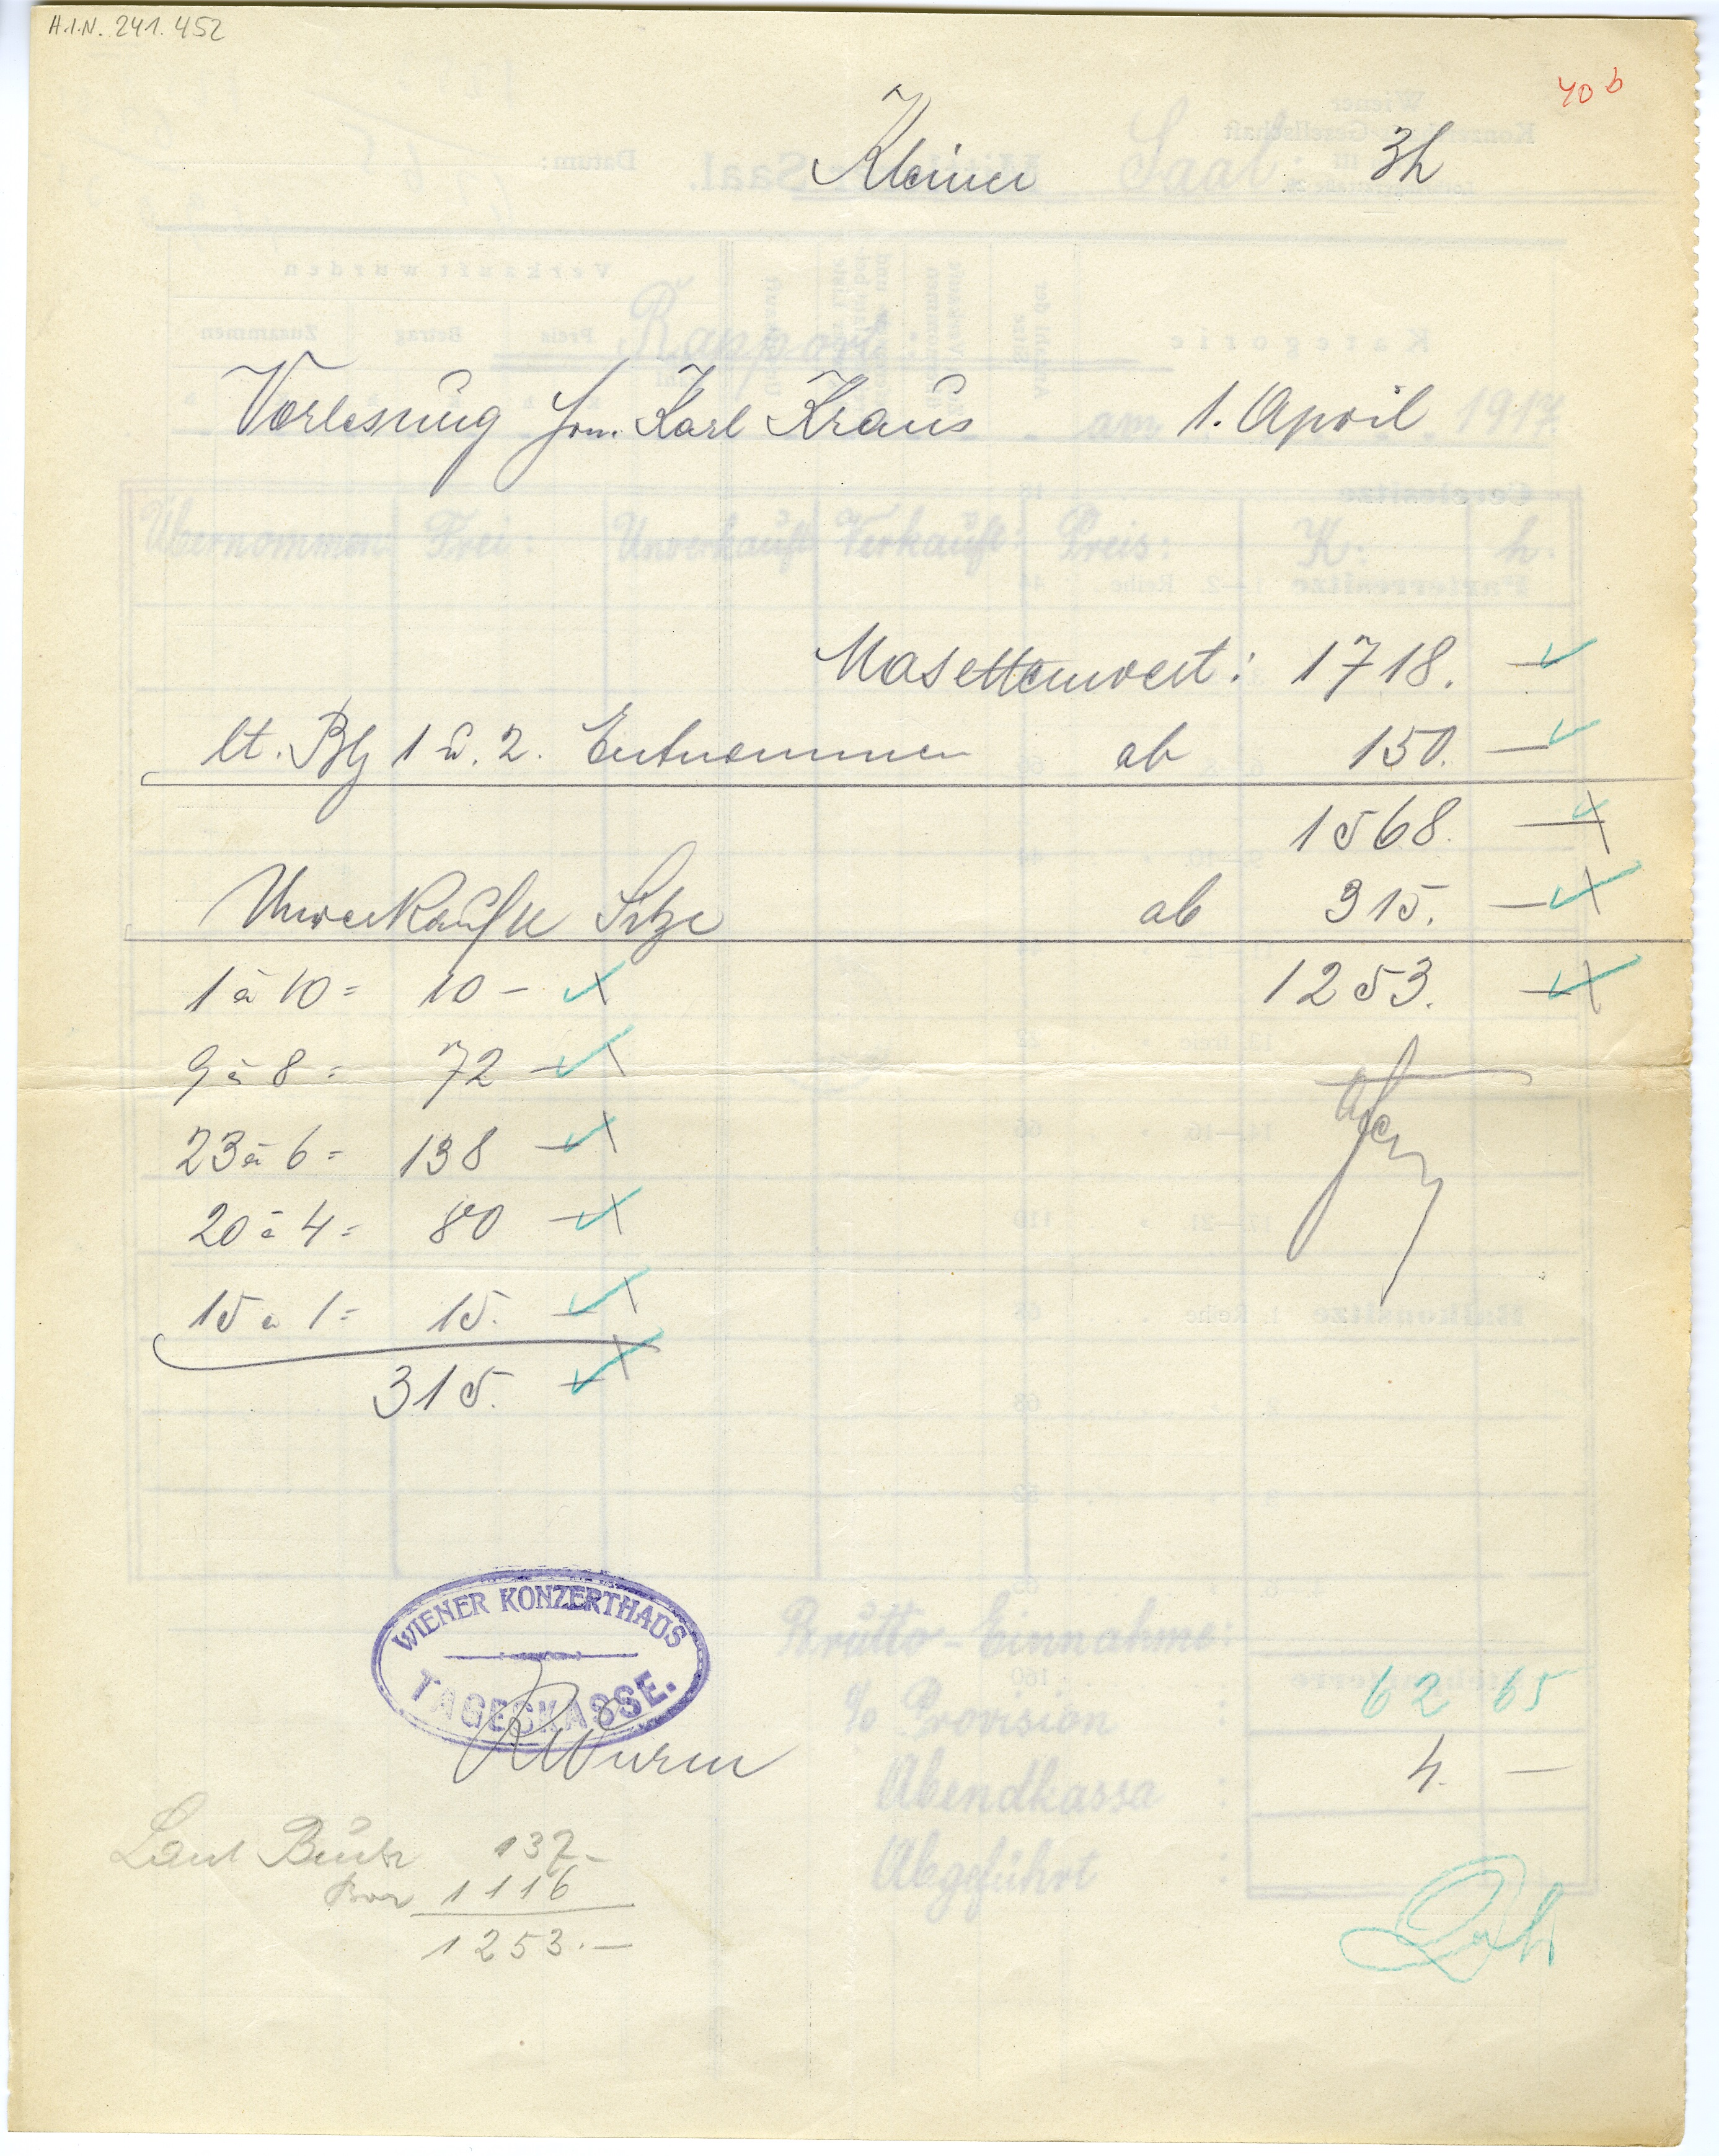 H.I.N. 241.452
40 b
Kleiner Saal. 3h
Rapport
Vorlesung Hrn. Karl Kraus am 1. April 1917.
Übernommen: Frei: Unverkauft: Verkauft: Preis: K: h.
Masettenwert: 1718. —
lt. Blg 1 u. 2. Entnommen ab 150. —
1568. —
Unverkaufte Sitze ab 315. —
1 à 10 = 10 — 1253. —
9 à 8 = 72 —
23 à 6 = 138 —
20 à 4 = 80 —
15 à 1 = 15. —
315. —
WIENER KONZERTHAUS
TAGESKASSE.
RWurm
Brutto-Einnahme:
% Provision : 62 65
Abendkassa : 4. —
Abgeführt :
Laut 137.—
1116
1253.—